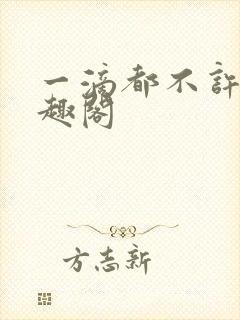 一滴都不许
趣阁
方志新